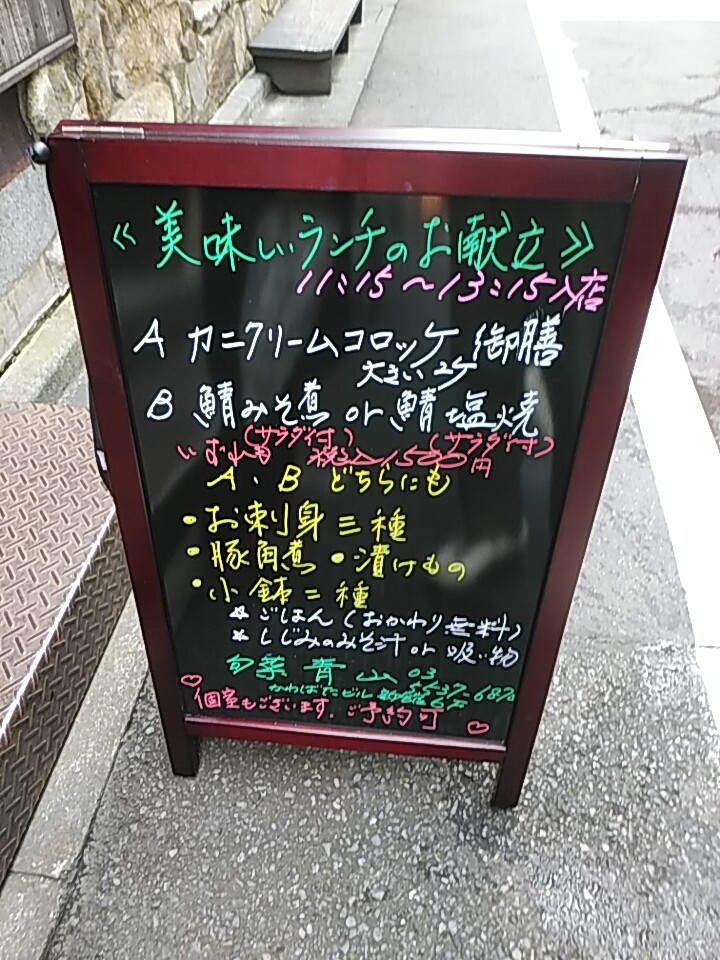 ≪美味しいランチのお献立≫
11:15〜13:15入店
A カニクリームコロッケ御膳
大きい2ケ
B 鯖みそ煮 or 鯖塩焼
(サラダ付) (サラダ付)
いずれも 税込1500円
A・B どちらにも
・お刺身三種
・豚角煮 ・漬けもの
・小鉢二種
* ごはん(おかわり無料)
* しじみのみそ汁 or 吸い物
旬菜 青山 03
ビル
♡個室もございます。ご予約可♡